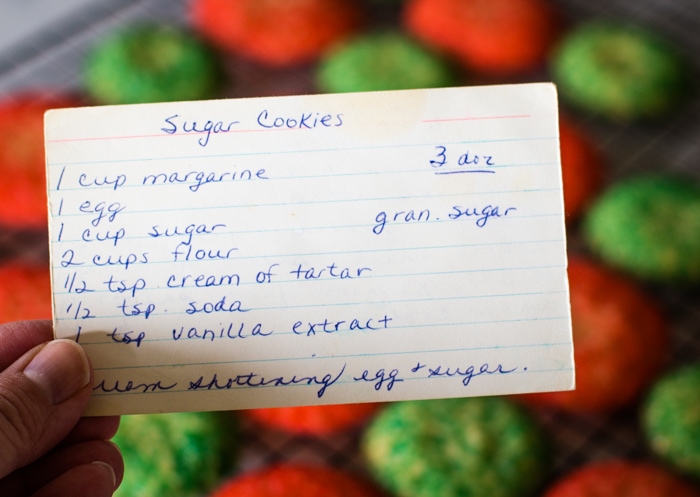 Sugar Cookies
3 doz
1 cup margarine
1 egg
1 cup sugar gran. sugar
2 cups flour
1/2 tsp cream of tartar
1/2 tsp. soda
1 tsp vanilla extract
shortening egg + sugar.